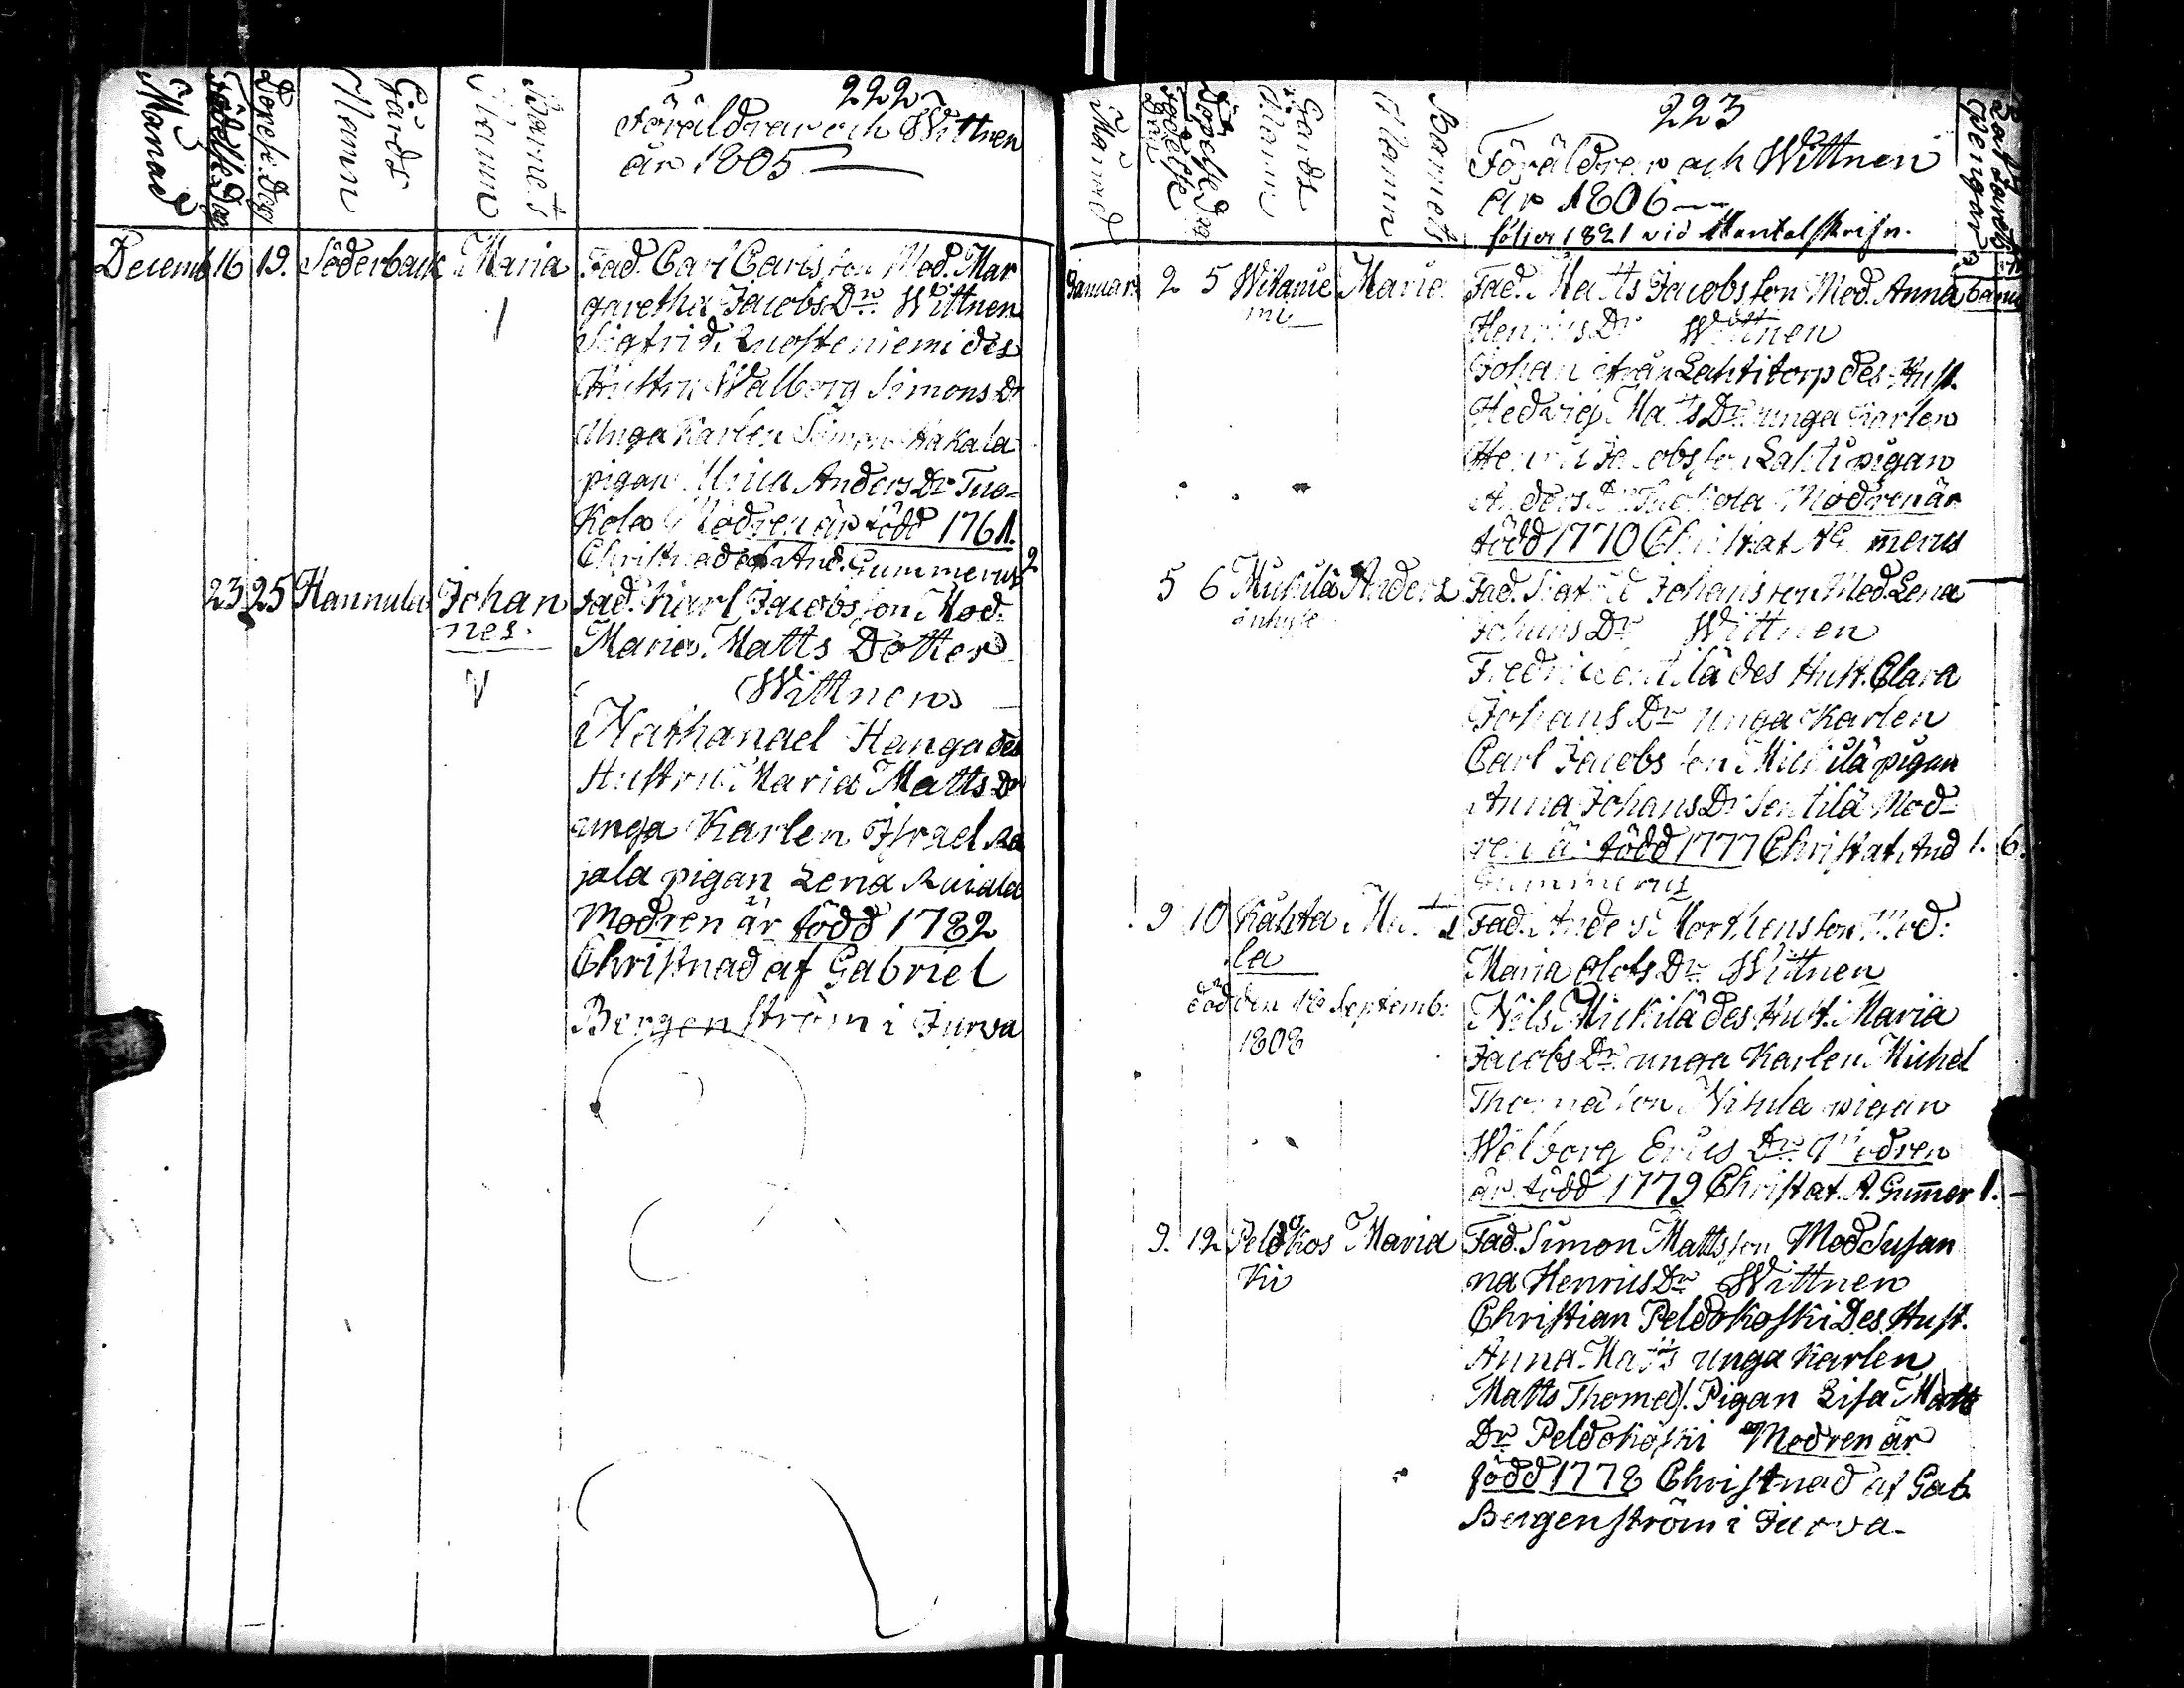 222
Månad
Födelse Dag
Döpelse Dag
Gårds Namn
Barnets Namn
Föräldrar och Wittnen
år 1805
Decemb 16 19. Söderback Maria Fad. Carl Carlsson Mod. Mar
garetha Jacobs Dr. Wittnen
Sigfrid Luosteniemi des
Hustru Walborg Simons Dr
unga Karlen Simon Kakala
pigan Ulrica Anders Dr Tuo-
kola Modren är född 1761.
Christnad af And. Gummerus 2
23 25 Hannula Johan Fad. Karl Jacobsson Mod.
nes. Maria Matts Dotter
Wittnen
Nathanael Hanga des
Hustru Maria Matts Dr
unga Karlen Israel Ra
jala pigan Lena Rajala
Modren är född 1782
Christnad af Gabriel
Bergenström i Jurva
223
Månad
Födelse Dag
Döpelse Dag
Gårds Namn
Barnets Namn
Föräldrar och Wittnen
år 1806
följer 1821 vid Mantalskrifn.
Januar. 2 5 Witanie Maria Fad. Matts Jacobsson Mod. Anna
mi Henrics Dr Wittnen
Johan ifrån Lahtitorp des Hust.
Hedvig Matts Dr. unga Karlen
Henric Jacobsson Lahti pigan
Anders Dr Tuokola Modren är
född 1770 Christ af A G merus
5 6 Mukila Anders Fad. Sigfrid Johansson Mod. Lena
inhyse Johans Dr Wittnen
Fredric des Hust. Clara
Johans Dr unga Karlen
Carl Jacobsson Mickilä pigan
Anna Johans Dr Sentilä Mod-
ren är född 1777 Christ af And 1. 6.
Gummerus
9 10 Kahta Matts Fad. Anders Morthensson Mod.
la Maria Olofs Dr. Wittnen
död den 18 Septemb: Nils Mickilä des Hust. Maria
1808 Jacobs Dr. unga Karlen Michel
Thomasson pigan
Walborg Erics Dr. Modren
är född 1779 Christ af. A. Gum̄er 1. –
9. 12 Peldokos Maria Fad. Simon Mattsson Mod Susan
ki na Henrics Dr Wittnen
Christian Peldokoski Des Hust.
Anna Matts unga Karlen
Matts Thomeds. Pigan Lisa Matts
Dr Peldokoski Modren är
född 1778 Christnad af Gab.
Bergenström i Jurva-